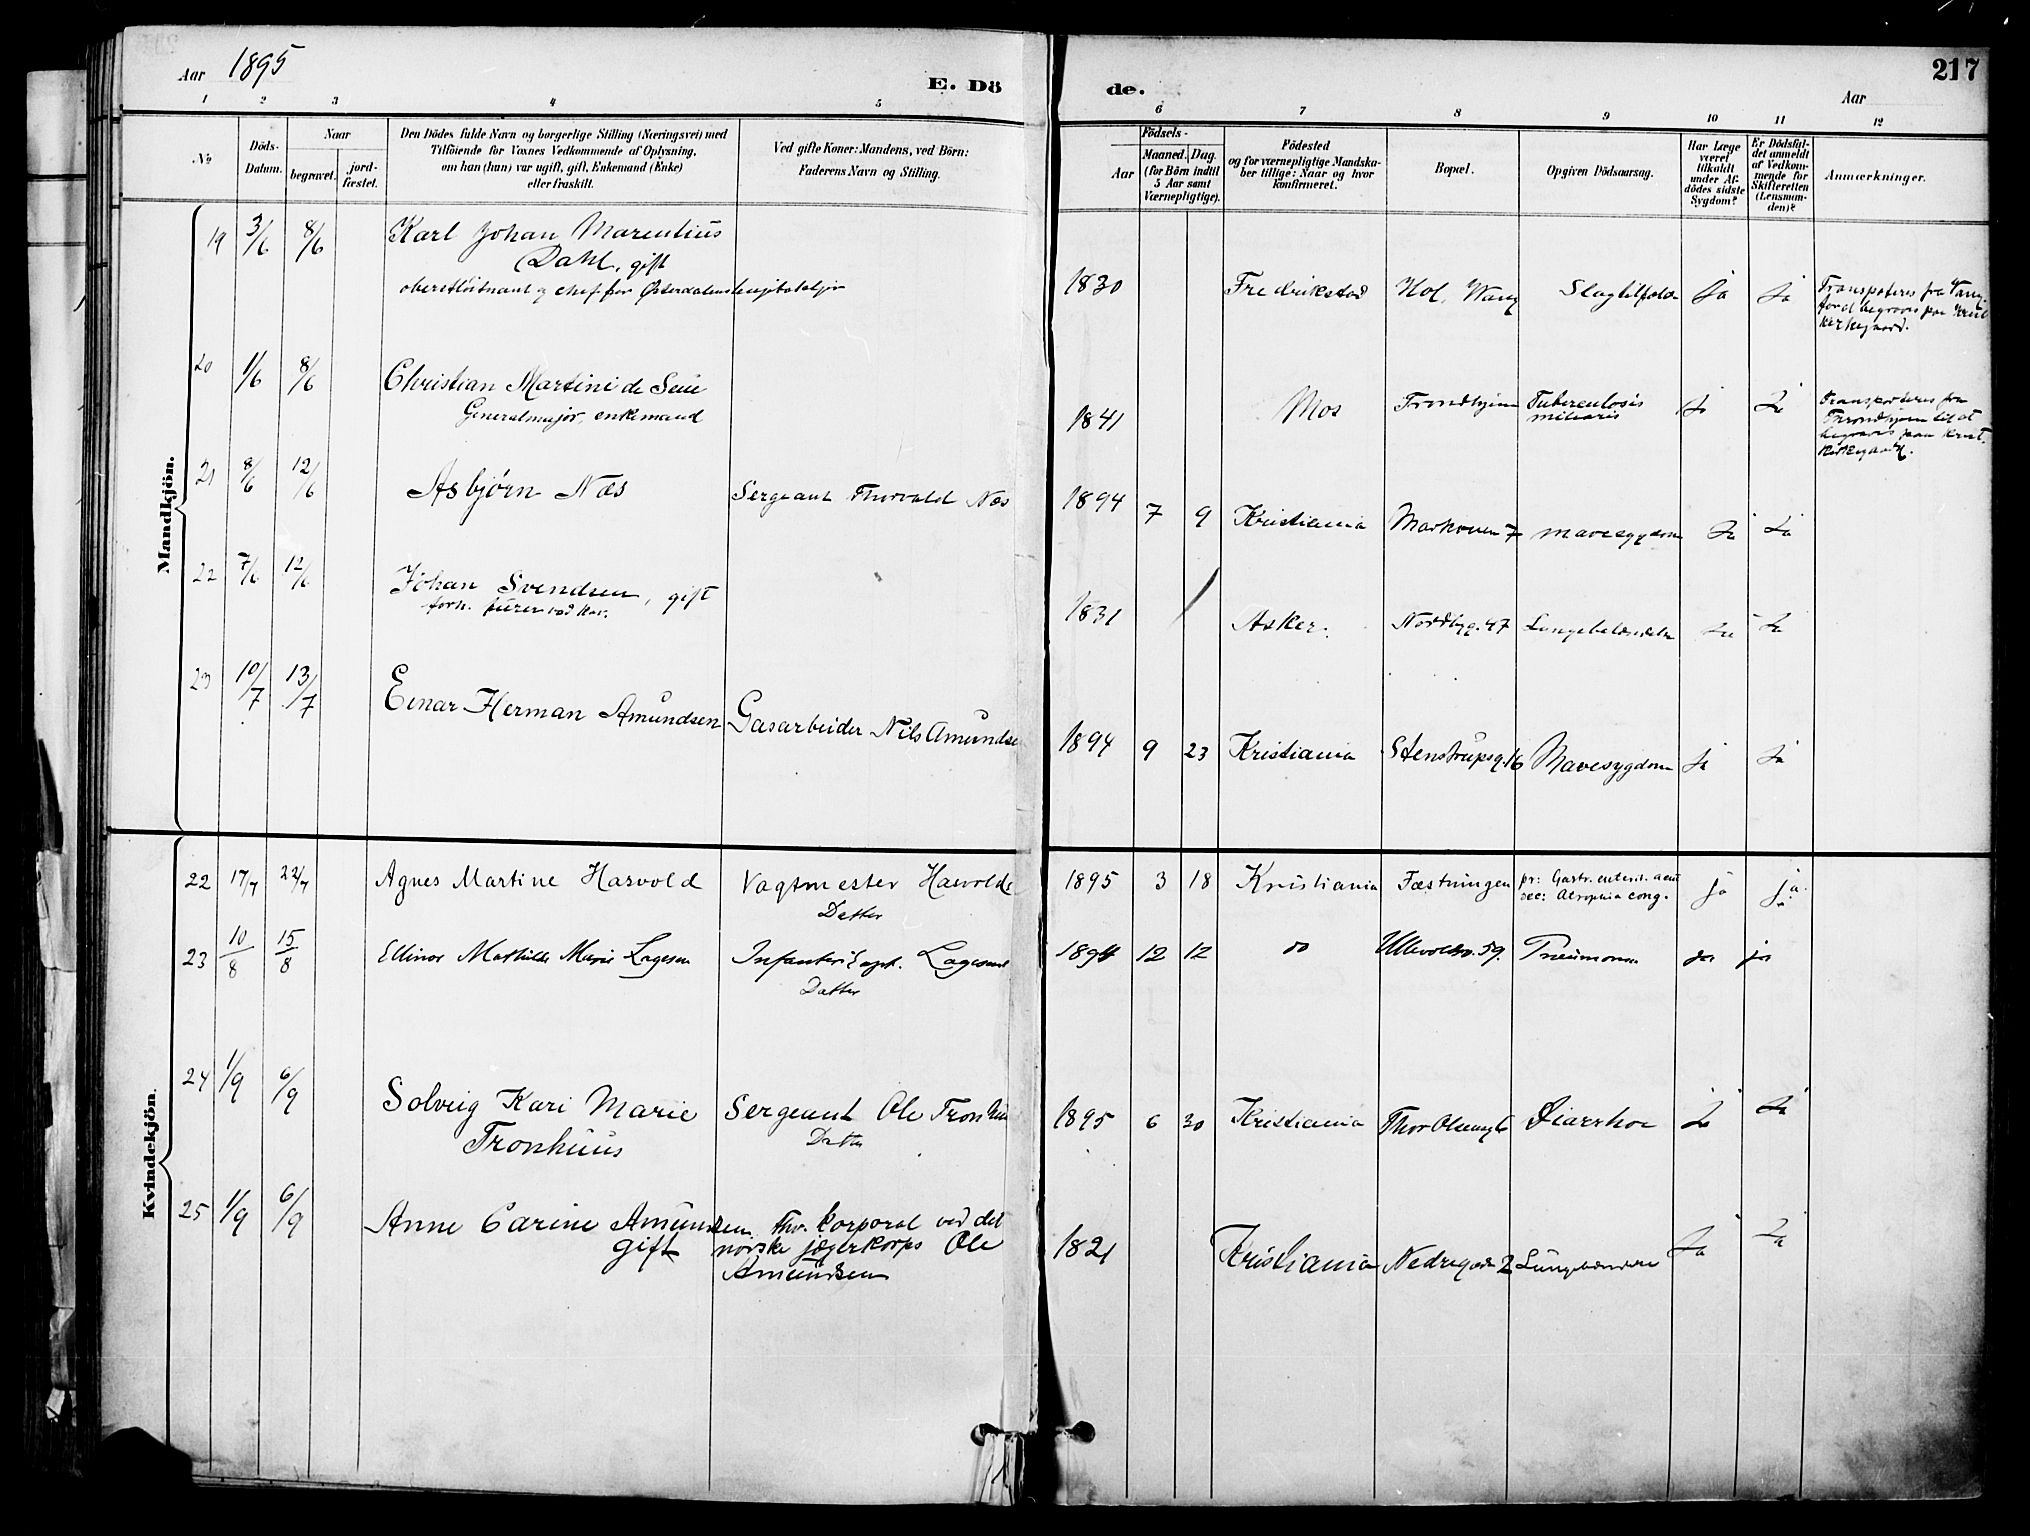 Aar 1895
E. Dö
de.
217
Aar
1 2 3 4 5 6 7 8 9 10 11 12
No
Döds-
Datum.
Naar
begravet.
jord-
fæstet.
Den Dödes fulde Navn og borgerlige Stilling (Næringsvei) med
Tilföiende for Voxnes Vedkommende af Oplysning,
om han (hun) var ugift, gift, Enkemand (Enke)
eller fraskilt.
Ved gifte Koner: Mandens, ved Börn:
Faderens Navn og Stilling.
Födsels-
Aar
Maaned. Dag.
(for Börn indtil
5 Aar samt
Værnepligtige).
Födested
og for værnepligtige Mandska-
ber tillige: Naar og hvor
konfirmeret.
Bopæl.
Opgiven Dödsaarsag.
Har Læge
været
tilkaldt
under Af-
dödes sidste
Sygdom?
Er Dödsfal-
det anmeldt
af Vedkom-
mende for
Skifteretten
(Lensman-
den)?
Anmærkninger.
Mandkjön.
19 3/6 8/6 Karl Johan Marentius
Dahl, gift
oberstløitnant og chef for Østerdalens
1830 Fredrikstad Hol, Vang Slagtilfælde Ja Ja
Transporteres fra Vang
for at begraves paa
kirkegaard.
20 1/6 8/6 Christian Martini de Seue
Generalmajor, enkemand
1841 Mos Trondhjem Tuberculosis
miliaris Ja Ja
Transporteres fra
Throndhjem til at
begraves paa Krist.
kirkegaard.
21 8/6 12/6 Asbjørn Næs Sergeant Thorvald Næs
1894 7 9 Kristiania Markveien 7 Mavesygdom Ja Ja
22 7/6 12/6 Johan Svendsen, gift
forh. furer ved kav.
1831 Asker. Nordbyg. 47 Lungebetændelse Ja Ja
23 10/7 13/7 Einar Herman Amundsen Gasarbeider Nils Amundse
1894 9 23 Kristiania Stenstrupsg. 16 Mavesygdom Ja Ja
Kvindekjön.
22 17/7 22/7 Agnes Martine Harvold Vagtmester Harvolds
Datter
1895 3 18 Kristiania Fæstningen pr: Gastr. enterit. acut
sec: Atrophia cong. ja ja.
23 10/8 15/8 Ellinor Mathilde Marie Lagesen Infanteri capt. Lagesens
Datter
1894 12 12 do Ullevoldsv. 59. Pneumonia ja ja
24 1/9 6/9 Solveig Kari Marie
Tronhuus
Sergeant Ole Tronhu
Datter
1895 6 30 Kristiania Thor Olsensg 6 Diarrhoe Ja Ja
25 1/9 6/9 Anne Carine Amundsen
gift
fhv. korporal ved det
norske jægerkorps Ole
Amundsen
1821 Kristiania Nedregade 2 Ja Ja